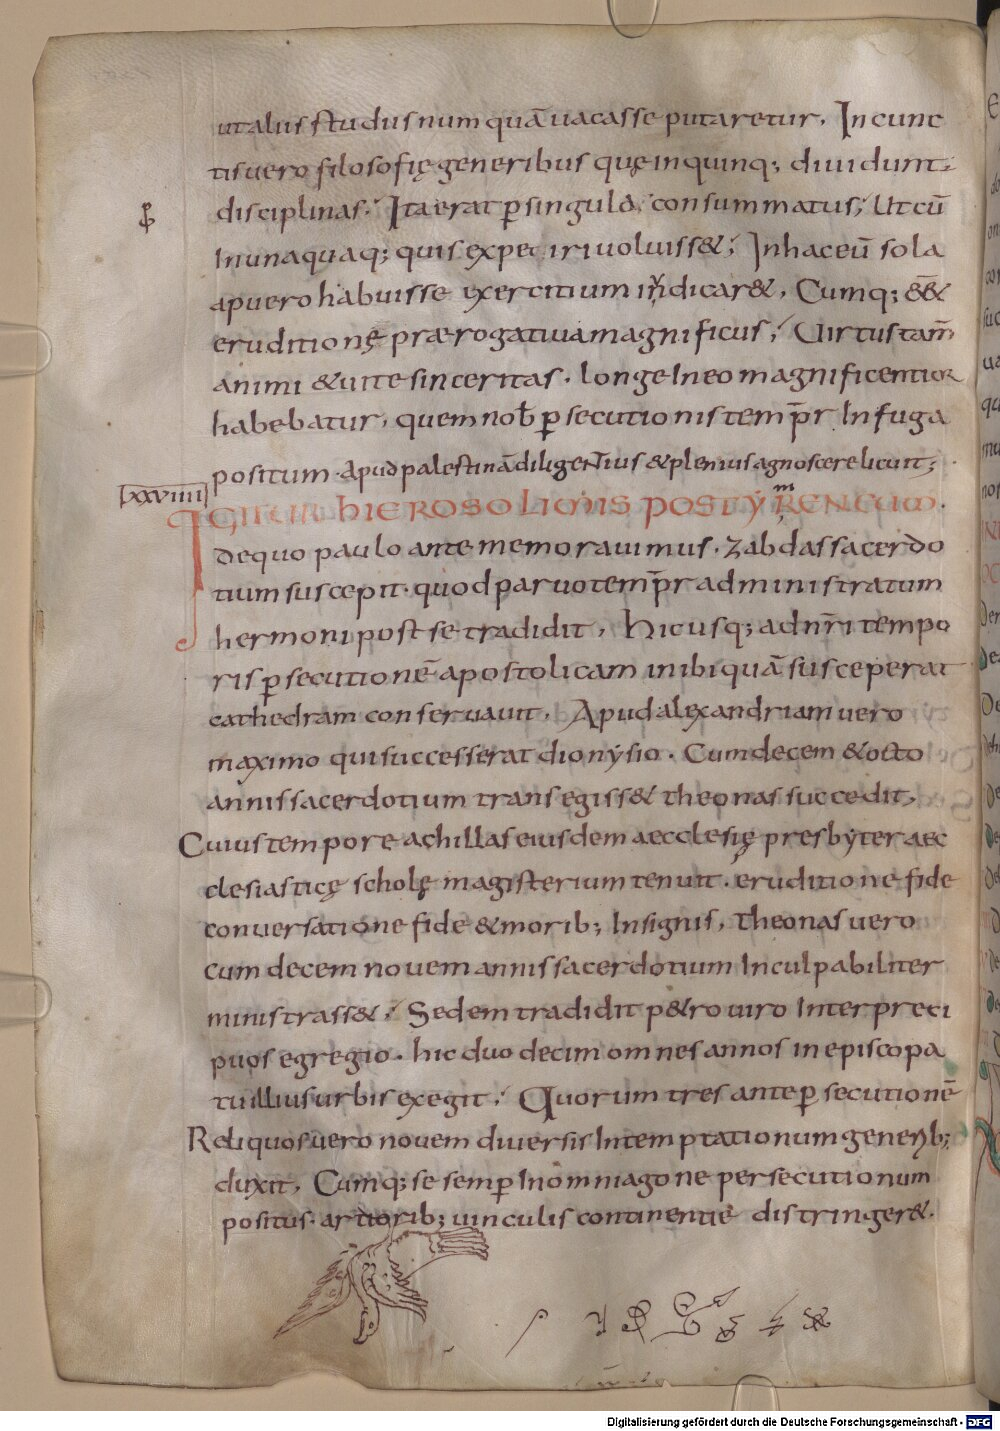 utalus studus numquā uacasse putaretur, In cunc
tis uero filosofię generibus quę in quinq; diuidunt
disciplinas. Ita erat p̱ singula consummatus; Ut cū
In unaquaq; quis expetiri uoluiss&; In hac eū sola
a puero habuisse exercitium iudicar&, Cumq; ēē&
eruditionę prærogatiua magnificus; Uirtus tam̄
animi & uite sinceritas. longe In eo magnificentior
habebatur, quem nob̄ p̱secutionis tem̄pr In fuga
positum. apud palestinā diligentius & plenius agnoscere licuit;
XXVIIII
IGITUR HIEROSOLIMIS POST YMRENEUM.
de quo paulo ante memorauimus. Zabdas sacerdo
tium suscepit. quod paruo tem̄pr administratum
hermoni post se tradidit, Hic usq; ad nr̄i tempo
ris p̱secutionē apostolicam inibi quā susceperat
cathedram conseruauit, Apud alexandriam uero
maximo qui successerat dionysio. Cum decem & octo
annis sacerdotium transegiss& theonas succedit,
Cuius tempore achillas eiusdem aecclesię presbyter aec
clesiasticę scholę magisterium tenuit. eruditione fide
conuersatione fide & morib; Insignis, Theonas uero
cum decem nouem annis sacerdotium Inculpabiliter
ministrass&; Sedem tradidit p&ro uiro Inter preci
puos egregio. hic duodecim omnes annos in episcopa
tu illius urbis exegit; Quorum tres ante p̱secutionē
Reliquos uero nouem diuersis Intemptationum generib;
duxit, Cumq; se semp̱ In omni agone persecutionum
positus. artiorib; uinculis continentie distringer&.
Digitalisierung gefördert durch die Deutsche Forschungsgemeinschaft - DFG